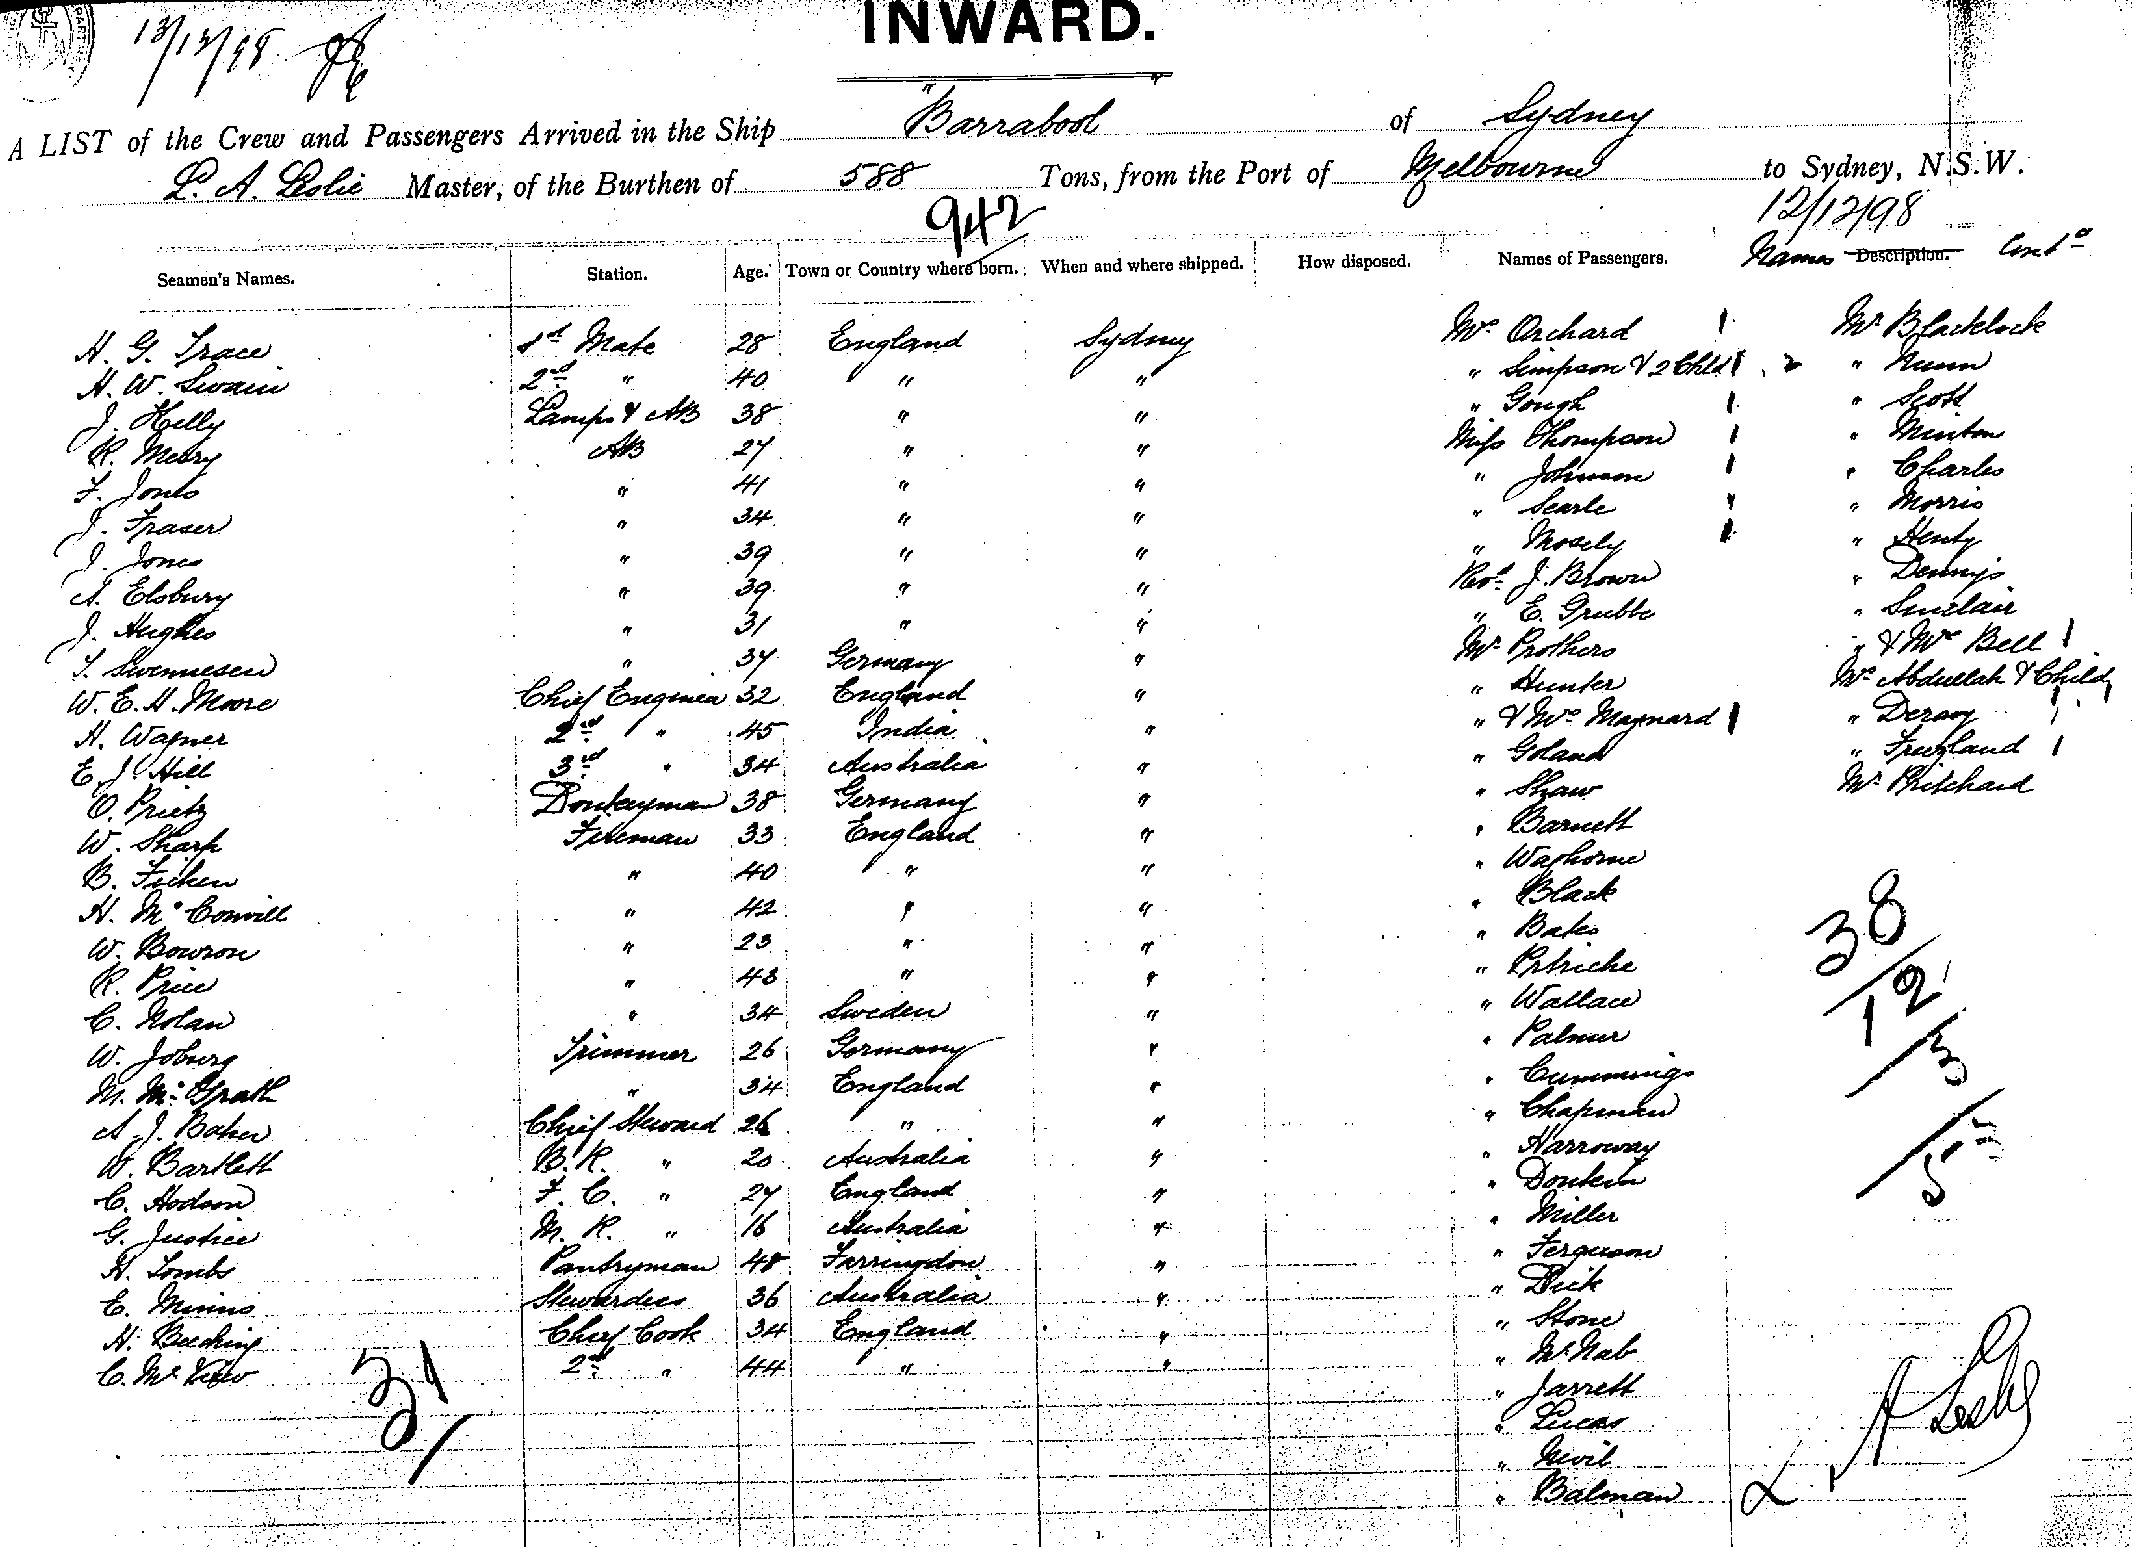 13/12/98
INWARD.
A LIST of the Crew and Passengers Arrived in the Ship "Barrabool" of Sydney
L. A. Leslie Master, of the Burthen of 588 Tons, from the Port of Melbourne to Sydney, N.S.W.
942 12/12/98
Seamen's Names. Station. Age. Town or Country where born. When and where shipped. How disposed. Names of Passengers. Names Description. Contd
H. G. Trace 1st Mate 28 England Sydney Mrs Orchard 1 Mr Blacklock
H. W. Swain 2nd " 40 " " " Simpson & 2 Chld 1 . 2 " Nunn
J. Helly Lamps & AB 38 " " " Gough 1 " Scott
R. Merry AB 27 " " Miss Thompson 1 " Minton
F. Jones " 41 " " " Johnson 1 " Charles
J. Fraser " 34 " " " Searle 1 " Morris
J. Jones " 39 " " " Mosely 1 " Henty
A. Elsbury " 39 " " Revd J. Brown " Dennys
J. Hughes " 31 " " " E. Grubb " Sinclair
" 37 Germany " Mr Prothers " & Mrs Bell 1
W. E. H. Moore Chief Engineer 32 England " " Hunter Mrs Abdullah & Child
H. Wagner 2nd " 45 India " " & Mrs Maynard 1 "
E. J. Hill 3rd " 34 Australia " " Goland "
O. Prietz Donkeyman 38 Germany " " Shaw Mr Pritchard
W. Sharp Fireman 33 England " " Barnett
B. Ficken " 40 " " " Waghorne
H. McConvill " 42 " " " Black
W. Bowron " 23 " " " Bates
R. Price " 43 " " " Petriche
C. Nolan " 34 Sweden " " Wallace
W. Joburg Trimmer 26 Germany " " Palmer
M. McGrath " 34 England " " Cummings
A. J. Baker Chief Steward 26 " " " Chapman
W. Bartlett B. R. " 20 Australia " " Harroway
C. Hodson F. C. " 27 England " " Donkin
G. Justice M. R. " 16 Australia " " Miller
H. Tombs Pantryman 48 Farringdon " " Ferguson
E. Minns Stewardess 36 Australia " " Dick
H. Beeching Chief Cook 34 England " " Stone
C. 2nd " 44 " " " McNab
" Jarrett
" Lucas
" Nevil
" Balman
31
38
12
3
L. A. Leslie